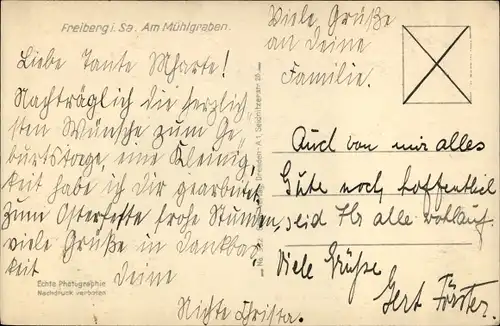 Freiberg i. Sa. Am Mühlgraben.
Liebe Tante Mharte!
Nachträglich die herzlich
sten Wünsche zum Ge
burtstage, eine Kleinig
keit habe ich dir gearbeitet
zum Osterfeste frohe Stunden,
viele Grüße in Dankbar
keit Deine
Nichte Christa.
Echte Photographie
Nachdruck verboten
Dresden-A.1, Seidnitzerstr.
Viele Grüße
an Deine
Familie.
Auch von mir alles
Gute noch, hoffentlich
seid Ihr alle wohlauf.
Viele Grüße
Gert Förster.